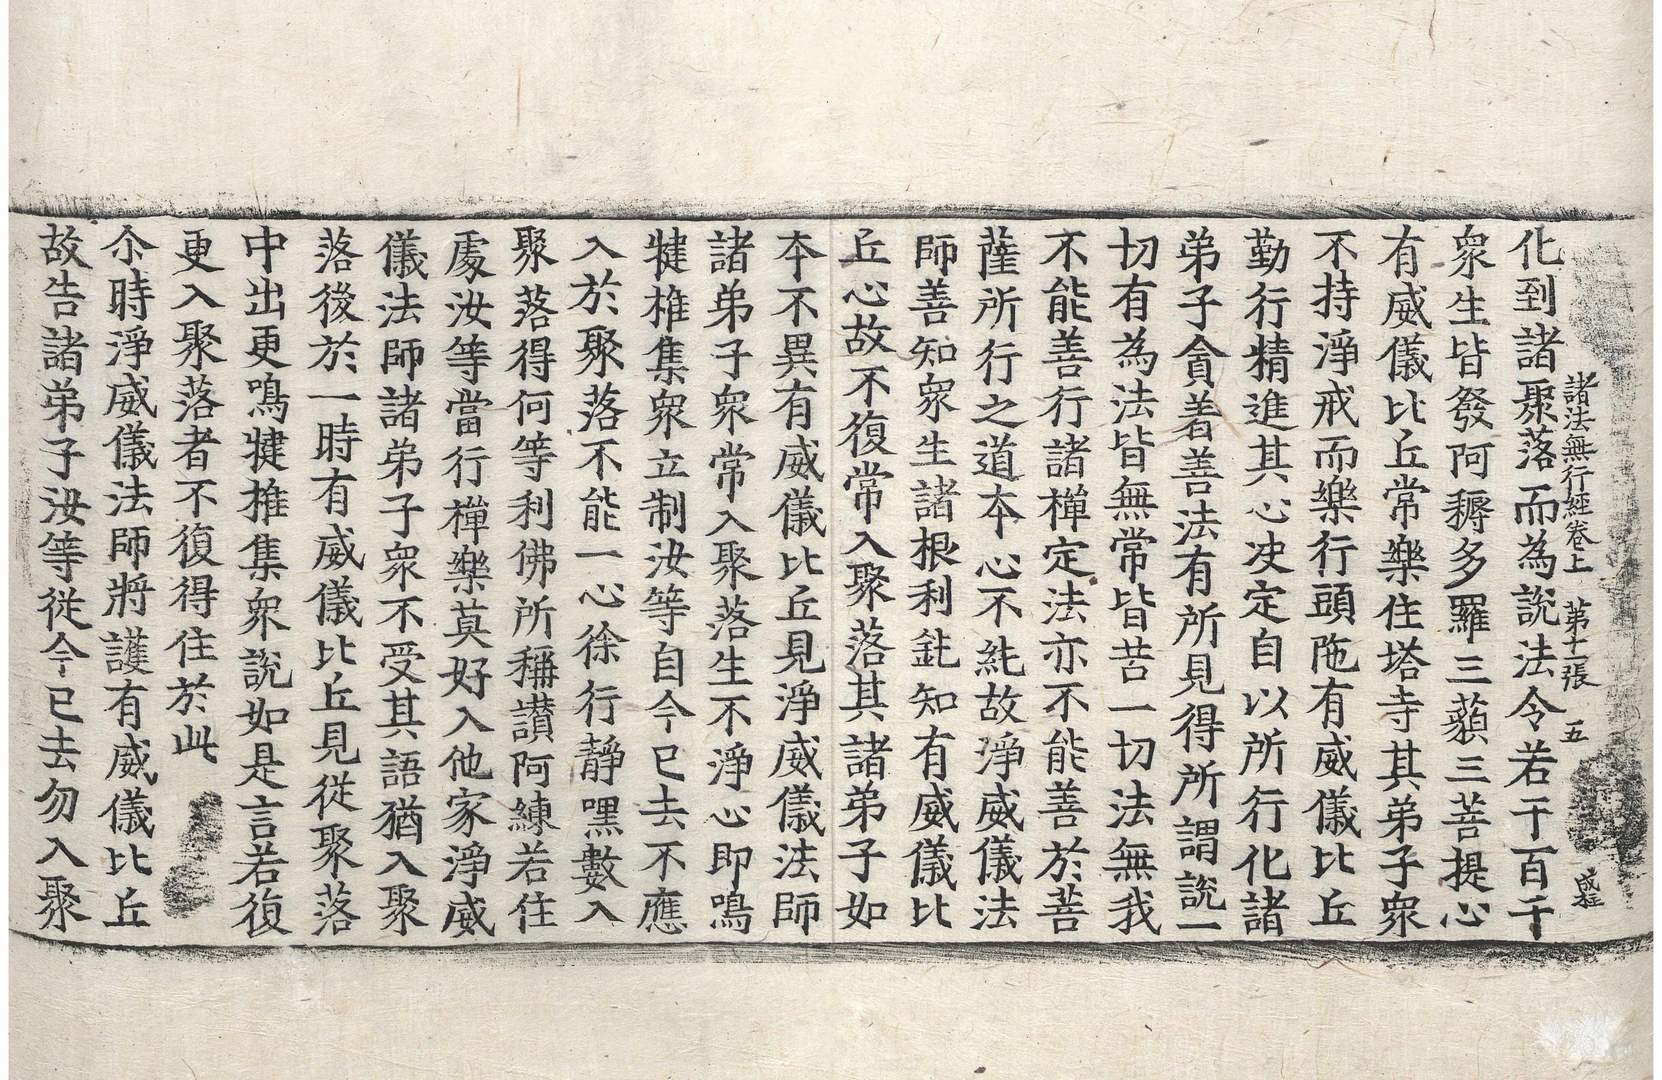 諸法無行經卷上　第十一張　五
化到諸聚落而為說法令若干百千
衆生皆發阿耨多羅三藐三菩提心
有威儀比丘常樂住塔寺其弟子衆
不持淨戒而樂行頭陁有威儀比丘
勤行精進其心决定自以所行化諸
弟子貪著善法有所見得所謂說一
切有為法皆無常皆苦一切法無我
不能善行諸禪定法亦不能善於菩
薩所行之道本心不純故淨威儀法
師善知衆生諸根利鈍知有威儀比
丘心故不復常入聚落其諸弟子如
本不異有威儀比丘見淨威儀法師
諸弟子衆常入聚落生不淨心即鳴
犍椎集衆立制汝等自今已去不應
入於聚落不能一心徐行靜嘿數入
聚落得何等利佛所稱讃阿練若住
處汝等當行禪樂莫好入他家淨威
儀法師諸弟子衆不受其語猶入聚
落後於一時有威儀比丘見從聚落
中出更鳴犍椎集衆說如是言若復
更入聚落者不復得住於此
尒時淨威儀法師將護有威儀比丘
故告諸弟子汝等從今已去勿入聚